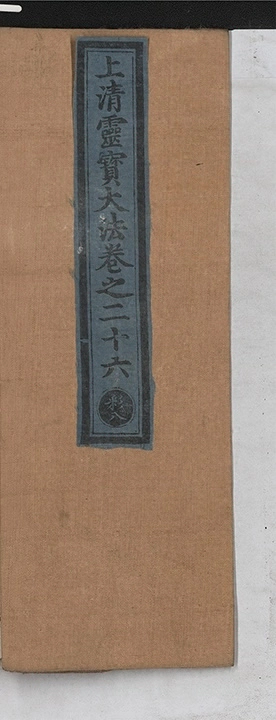 上清靈寶大法卷之二十六